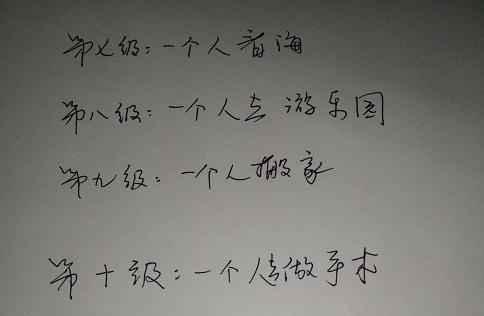 第七级：一个人看海
第八级：一个人去游乐园
第九级：一个人搬家
第十级：一个人去做手术